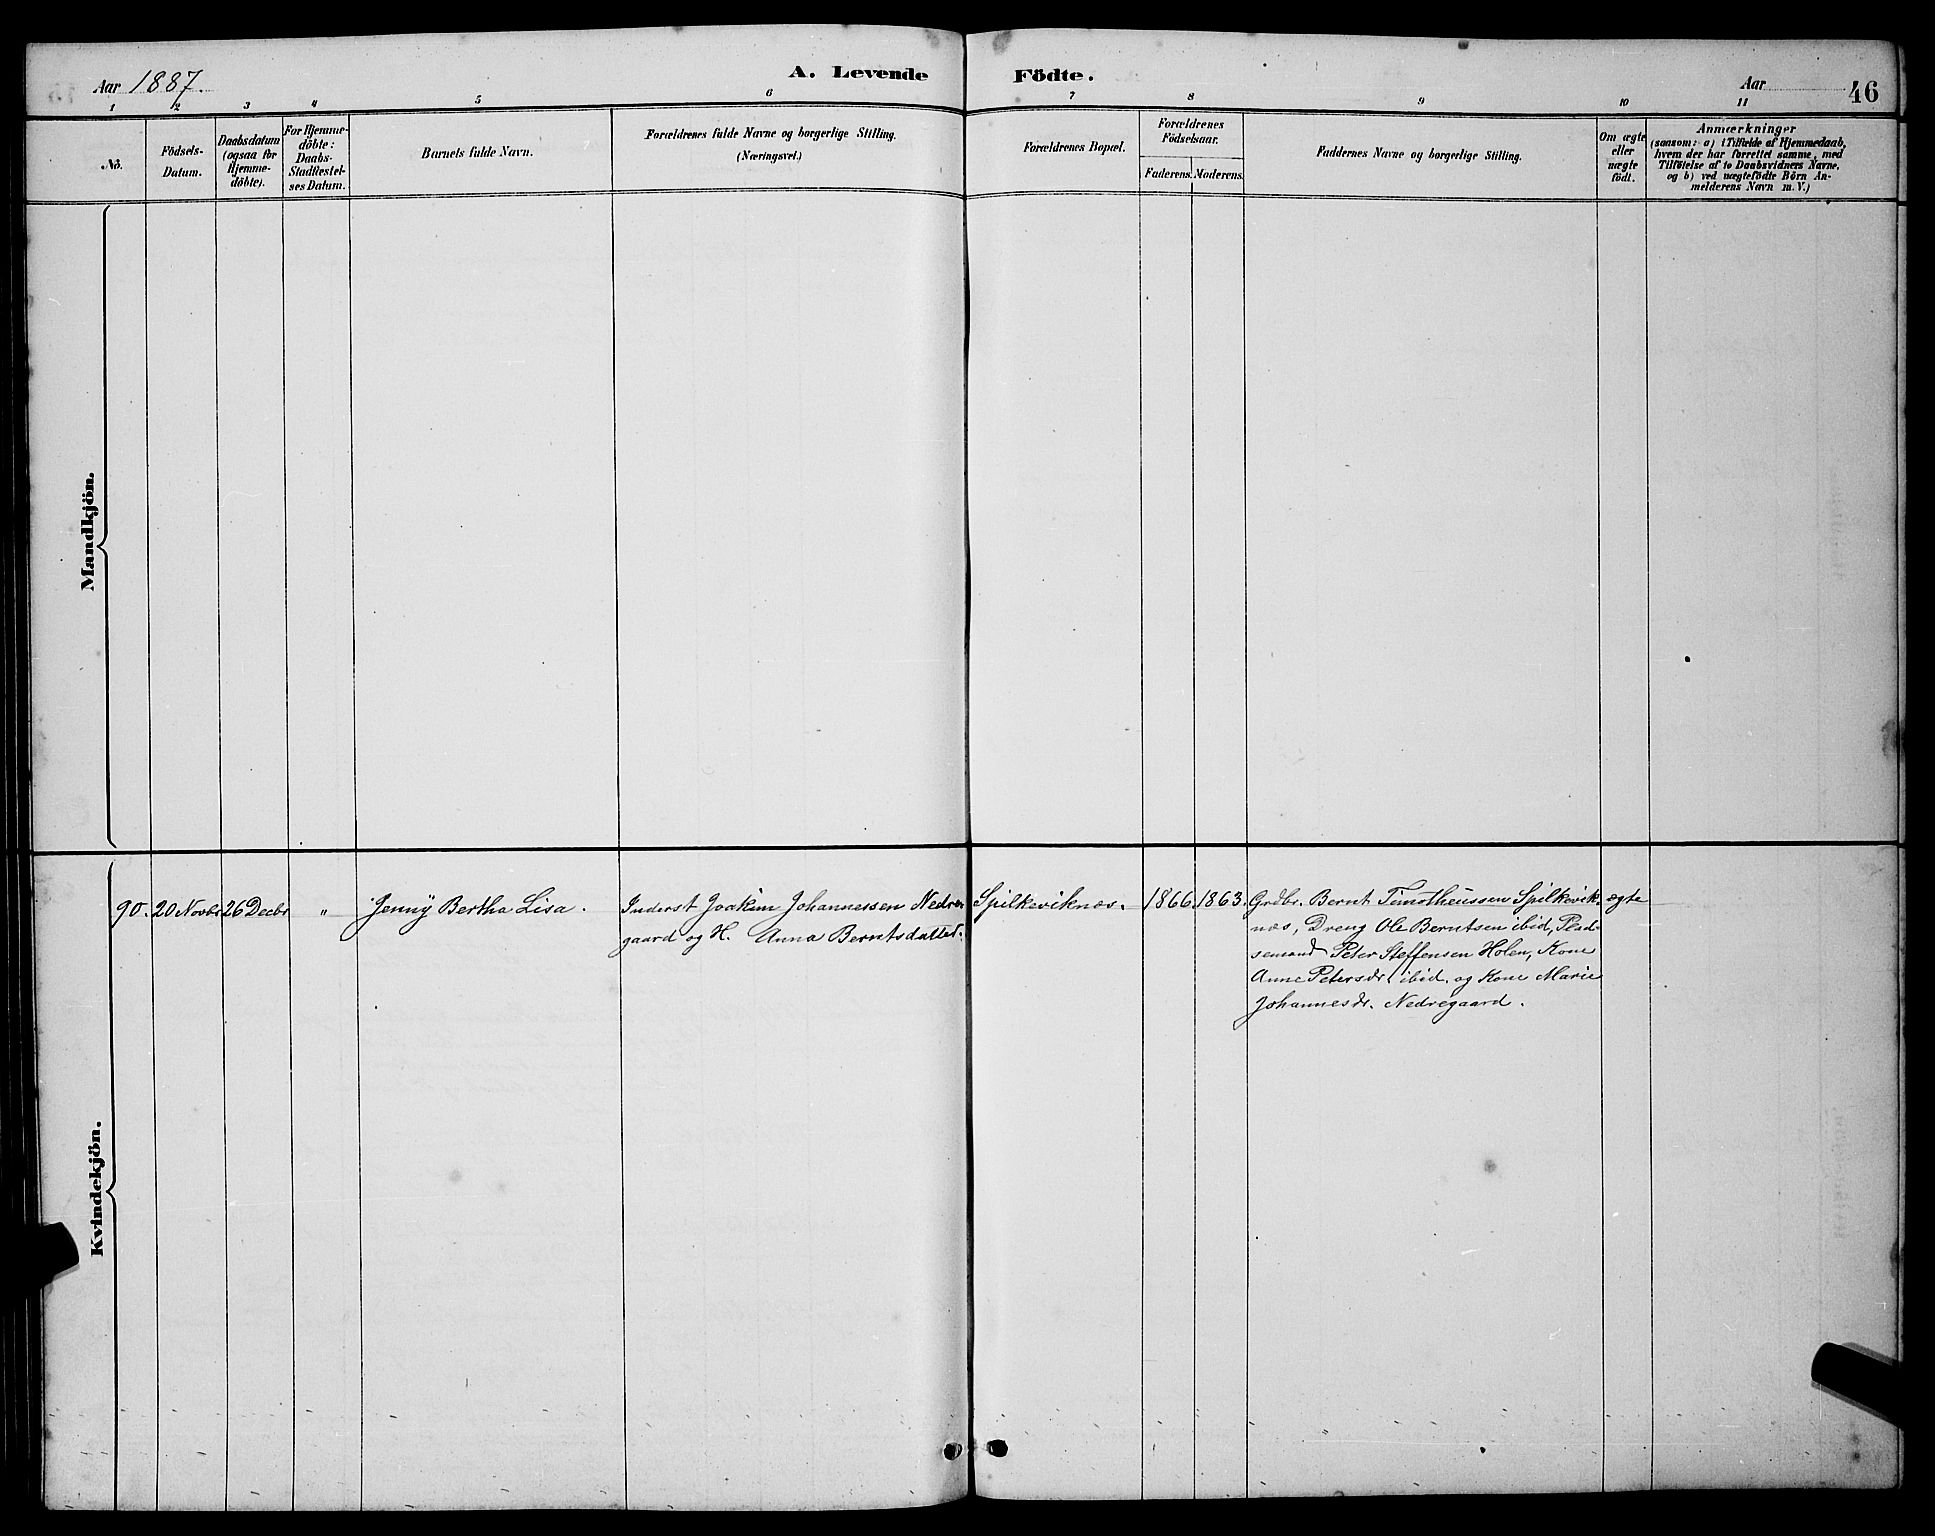 Aar 1887.
A. Levende Födte.
Aar
46
1 2 3 4 5 6 7 8 9 10 11
No.
Födsels-
Datum.
Daabsdatum
(ogsaa for
Hjemme-
döbte).
For Hjemme-
döbte:
Daabs-
Stadfæstel-
ses Datum.
Barnets fulde Navn.
Forældrenes fulde Navne og borgerlige Stilling.
(Næringsvei.)
Forældrenes Bopæl.
Forældrenes
Födselsaar.
Faderens. Moderens.
Faddernes Navne og borgerlige Stilling.
Om ægte
eller
uægte
födt.
Anmærkninger
(saasom: a) i Tilfælde af Hjemmedaab,
hvem der har forrettet samme, med
Tilföielse af to Daabsvidners Navne,
og b) ved uægtefödte Börn An-
melderens Navn m. V.)
Mandkjön.
Kvindekjön.
90. 20 Novbr 26 Decbr " Jenny Bertha Lisa. Inderst Joakim Johannessen Nedre- Spilkeviknæs. 1866. 1863. Grdbr. Bernt Timotheussen Spilkevik- ægte
gaard og H. Anna Berntsdatter.
næs, Dreng Ole Berntsen ibid, Plad-
semand Peter Steffensen Holen, Kone
Anne Petersdr. ibid. og Kone Marie
Johannesdr. Nedregaard.